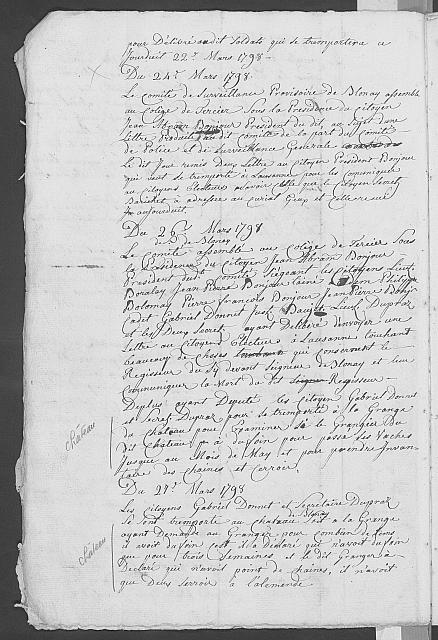 pour Délivré audit Soldats qui se transportera ce
Jourduit 22e. Mars 1798 -
Du 24e. Mars 1798.
Le Comité de Surveillance Provisoire de Blonay assemblé
au Colège de Tercier Sous la Présidence du Citoyen
Jean Abram Bonjour President du dit, au Sujet d'une
Lettre Produit audit Comité de la part du Comité
de Police et de Surveillance Generale
le dit Jour remis Deux Lettre au Citoyen President Bonjour
qui veut se transporté à Lausanne pour les Comuniquer
au Citoyens Electeurs savoir celle que le Citoyen
à adressée au Curial et
aujourduit.
Du 26e. Mars 1798
de Blonay
Le Comité assemblé au Colège de Tercier Sous
la Présidence du Citoyen Jean Abram Bonjour
President dudt. Comité Siégeant les Citoyens Lieut.
Jean Pierre Bonjour
Pierre François Bonjour Jean Pierre
Cadet Gabriel Donnet Lieut Dupraz
et les Deux Secret. ayant Délibéré d'envoyer une
Lettre au Citoyens Electeurs à Lausanne touchant
beaucoup de choses que concernent le
Regisseur du Sy devant Seigneur de Blonay et leur
Communiquer la Mort du dit Regisseur -
Deplus ayant Deputé les Citoyen Gabriel Donnet
et Secret. Dupraz pour se transporté à la Grange
du Chateau pour Examiner Si le Grangier du
dit Chateau à du foin pour passé Ses Vaches
Jusque au Mois de May et pour prendre Inven-
taire des Chaines et Cerroir.
Chateau
Du 27e. Mars 1798
Les Citoyens Gabriel Donnet et Secretaire Dupraz
Se sont transporté au Chateau Soit à la Grange
de Blonay
ayant Demandé au Granger pour Combien de tems
il avoit du foin est il a déclaré qui n'avoit du foin
que pour trois Semaines et le dit Granger à
Déclaré qui n'avoit point de Chaines, il n'avoit
que Deux Serroir à l'alemande
Chateau